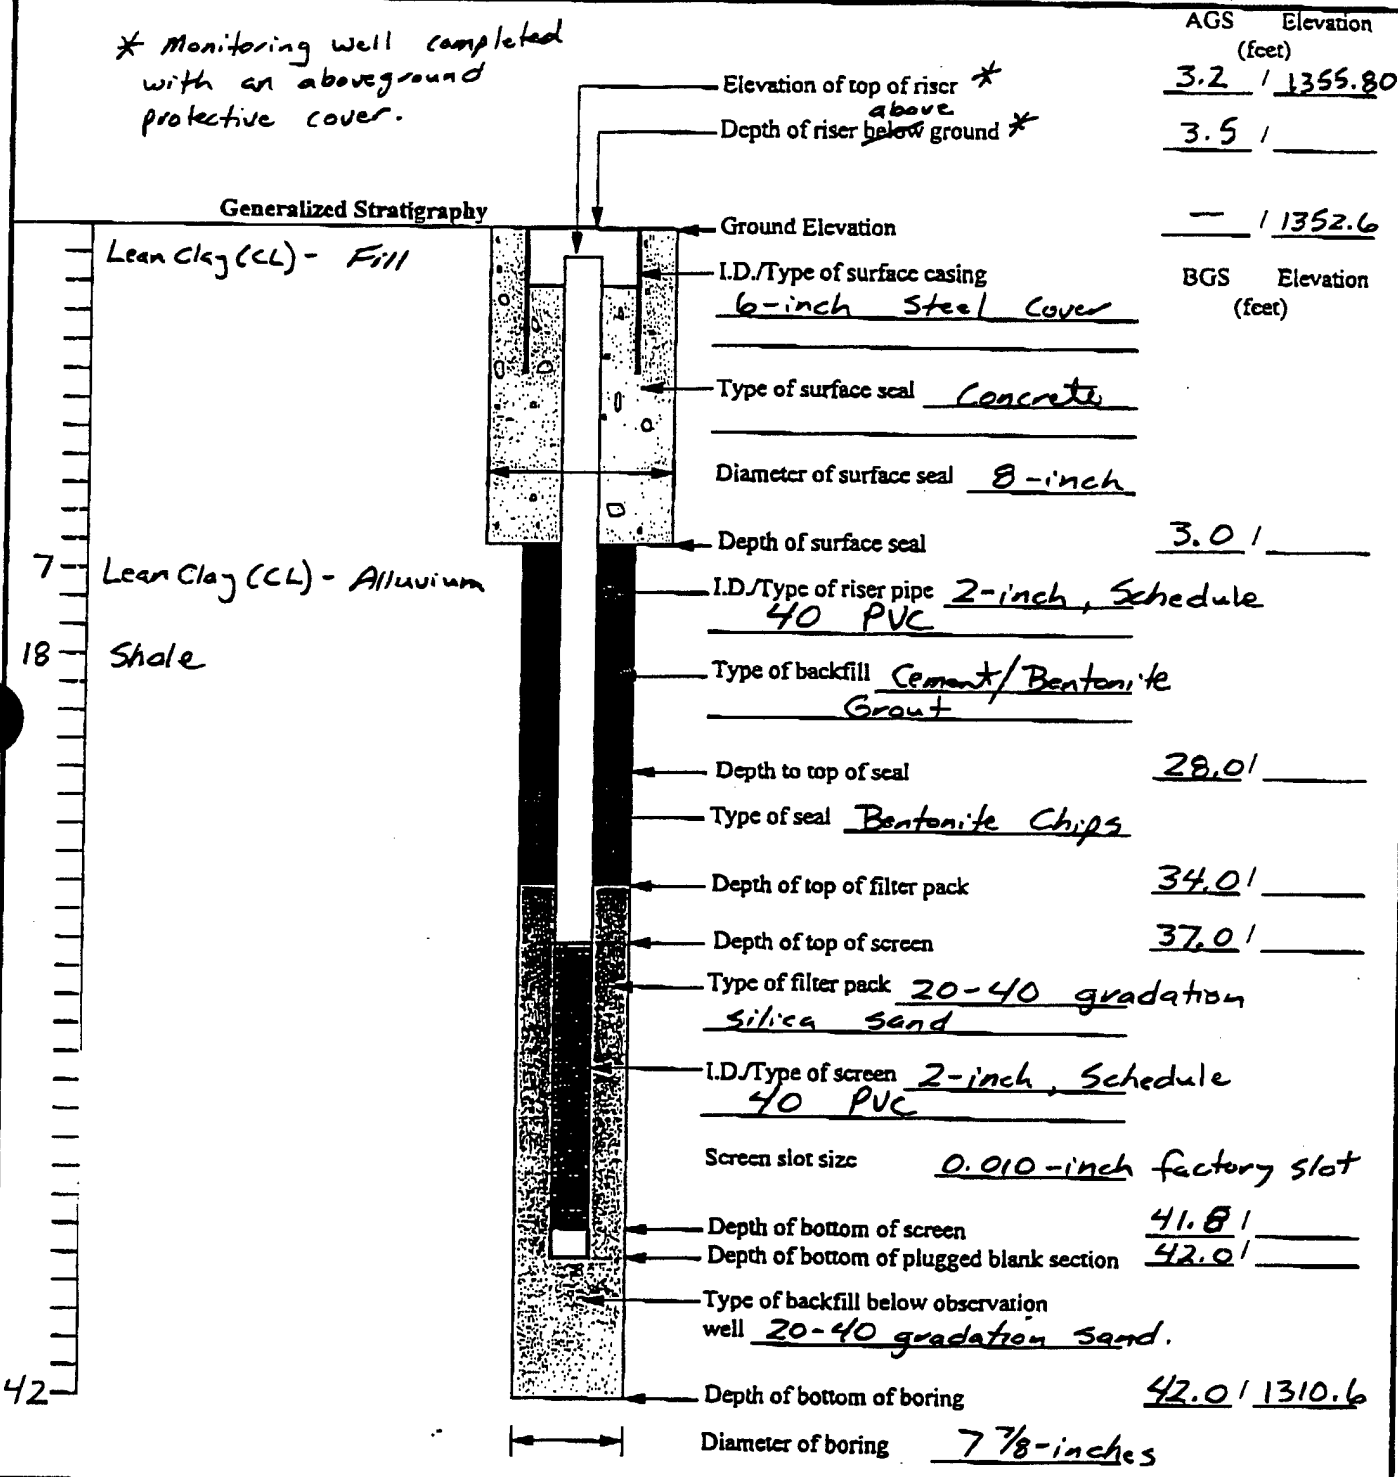 * Monitoring well completed
with an aboveground
protective cover.
AGS Elevation
(feet)
Elevation of top of riser * 3.2 / 1355.80
above
Depth of riser below ground * 3.5 /
Generalized Stratigraphy
Ground Elevation — / 1352.6
Lean Clay (CL) - Fill
I.D./Type of surface casing
BGS Elevation
(feet)
6-inch Steel Cover
Type of surface seal Concrete
Diameter of surface seal 8-inch
Depth of surface seal 3.0 /
7 Lean Clay (CL) - Alluvium
I.D./Type of riser pipe 2-inch, Schedule
40 PVC
18 Shale
Type of backfill Cement/Bentonite
Grout
Depth to top of seal 28.0 /
Type of seal Bentonite Chips
Depth of top of filter pack 34.0 /
Depth of top of screen 37.0 /
Type of filter pack 20-40 gradation
silica sand
I.D./Type of screen 2-inch, Schedule
40 PVC
Screen slot size 0.010-inch factory slot
Depth of bottom of screen 41.8 /
Depth of bottom of plugged blank section 42.0 /
Type of backfill below observation
well 20-40 gradation sand.
42
Depth of bottom of boring 42.0 / 1310.6
Diameter of boring 7 7/8-inches